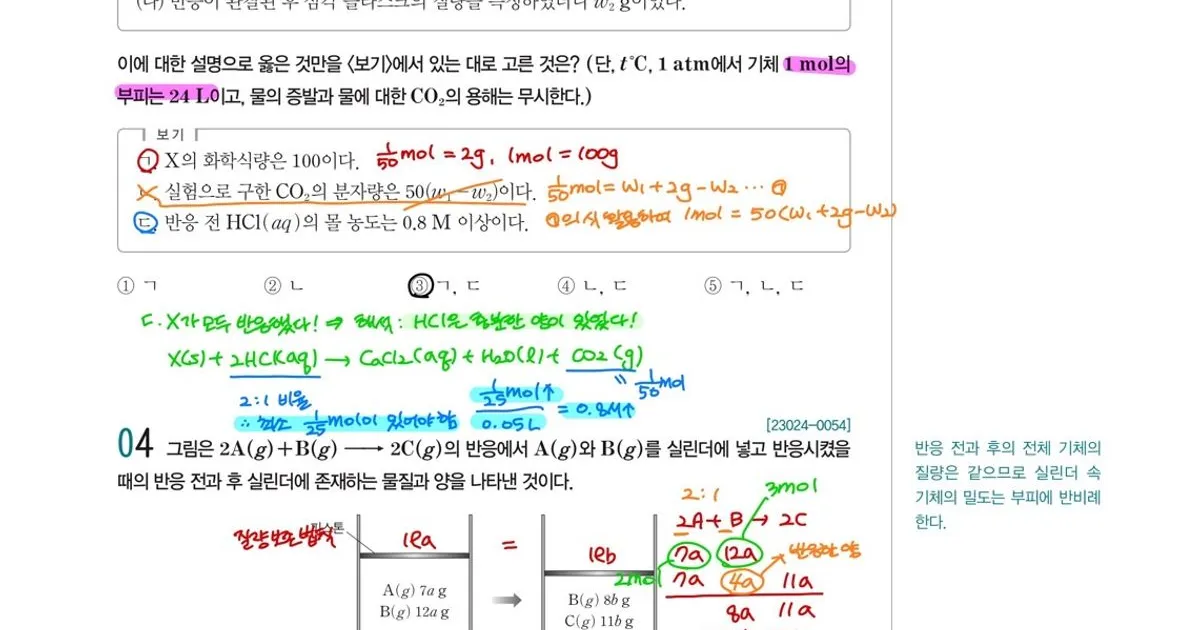 (다) 반응이 완결된 후 삼각 플라스크의 질량을 측정하였더니 w₂ g이었다.
이에 대한 설명으로 옳은 것만을 〈보기〉에서 있는 대로 고른 것은? (단, t℃, 1 atm에서 기체 1 mol의
부피는 24 L이고, 물의 증발과 물에 대한 CO₂의 용해는 무시한다.)
보기
ㄱ X의 화학식량은 100이다. 1/50 mol = 2g, 1mol = 100g
실험으로 구한 CO₂의 분자량은 50(w₁−w₂)이다. 1/50 mol = w₁+2g−w₂ ··· ㉠
ㄷ 반응 전 HCl(aq)의 몰 농도는 0.8 M 이상이다. ㉠의 식 활용하여 1mol = 50(w₁+2g−w₂)
① ㄱ ② ㄴ ③ ㄱ, ㄷ ④ ㄴ, ㄷ ⑤ ㄱ, ㄴ, ㄷ
ㄷ. X가 모두 반응했다! ⇒ 해석: HCl은 충분한 양이 있었다!
X(s) + 2HCl(aq) → CaCl2(aq) + H2O(l) + CO2(g)
2:1 비율
" 1/50 mol
∴ 최소 1/25 mol이 있어야 함
1/25 mol↑ / 0.05L = 0.8M↑
[23024-0054]
04 그림은 2A(g)+B(g) ⟶ 2C(g)의 반응에서 A(g)와 B(g)를 실린더에 넣고 반응시켰을
때의 반응 전과 후 실린더에 존재하는 물질과 양을 나타낸 것이다.
반응 전과 후의 전체 기체의
질량은 같으므로 실린더 속
기체의 밀도는 부피에 반비례
한다.
2:1
3mol
2A + B → 2C
질량보존 법칙
피스톤
19a = 19b
7a 12a 반응한 양
2mol 7a 4a 11a
8a 11a
A(g) 7a g
B(g) 12a g
B(g) 8b g
C(g) 11b g